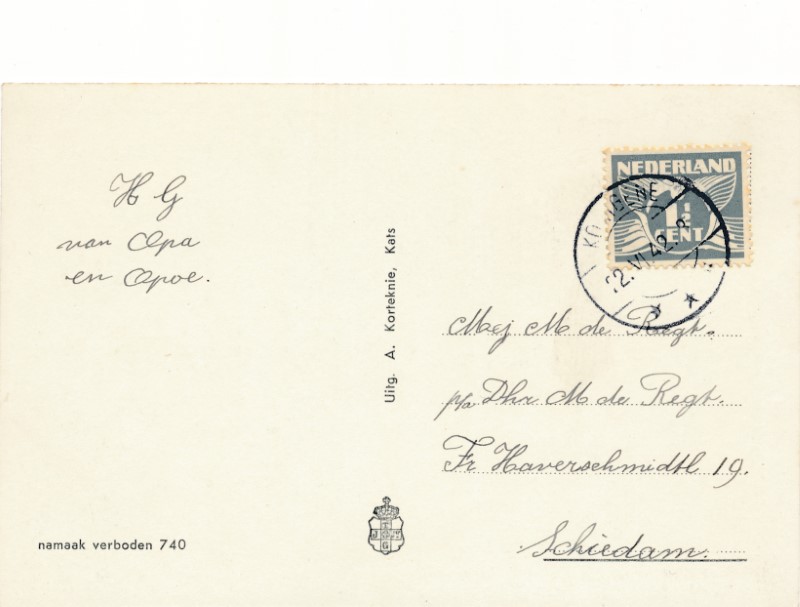 H G
van Opa
en Opoe.
namaak verboden 740
Uitg. A. Korteknie, Kats
NEDERLAND
1½
CENT
22.VI.42.8
Mej M de Regt.
p/a Dhr M de Regt.
Fr Haverschmidtl 19.
Schiedam.